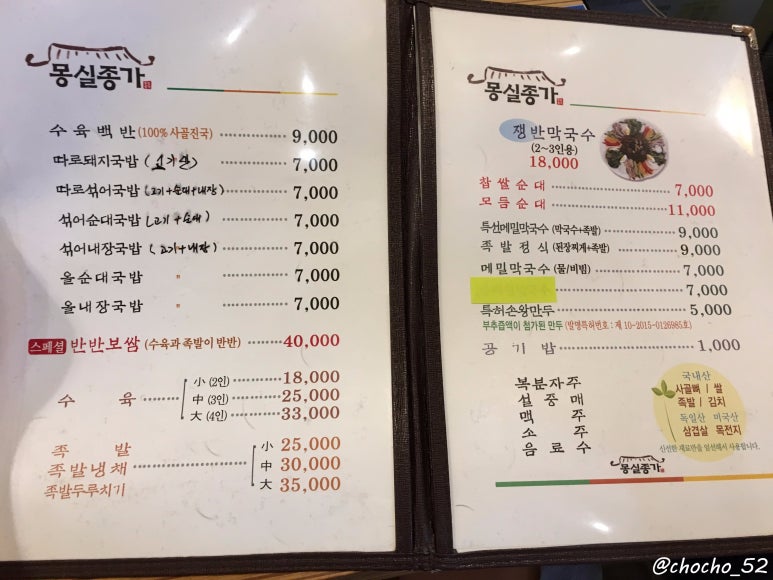 몽실종가
수육백반(100% 사골진국) 9,000
따로돼지국밥 7,000
따로섞어국밥 (고기+순대+내장) 7,000
섞어순대국밥 (고기+순대) 7,000
섞어내장국밥 (고기+내장) 7,000
올순대국밥 " 7,000
올내장국밥 " 7,000
스페셜 반반보쌈 (수육과 족발이 반반) 40,000
수육
小 (2인) 18,000
中 (3인) 25,000
大 (4인) 33,000
족발
족발냉채
족발두루치기
小 25,000
中 30,000
大 35,000
몽실종가
쟁반막국수
(2~3인용)
18,000
찹쌀순대 7,000
모듬순대 11,000
특선메밀막국수 (막국수+족발) 9,000
족발정식 (된장찌개+족발) 9,000
메밀막국수 (물/비빔) 7,000
7,000
특허손왕만두 5,000
부추즙액이 첨가된 만두 (발명특허번호 : 제 10-2015-0126985호)
공기밥 1,000
복분자주
설중매
맥주
소주
음료수
국내산
사골뼈 / 쌀
족발 / 김치
독일산 미국산
삼겹살 목전지
신선한 재료만을 엄선해서 사용합니다.
몽실종가
@chocho_52